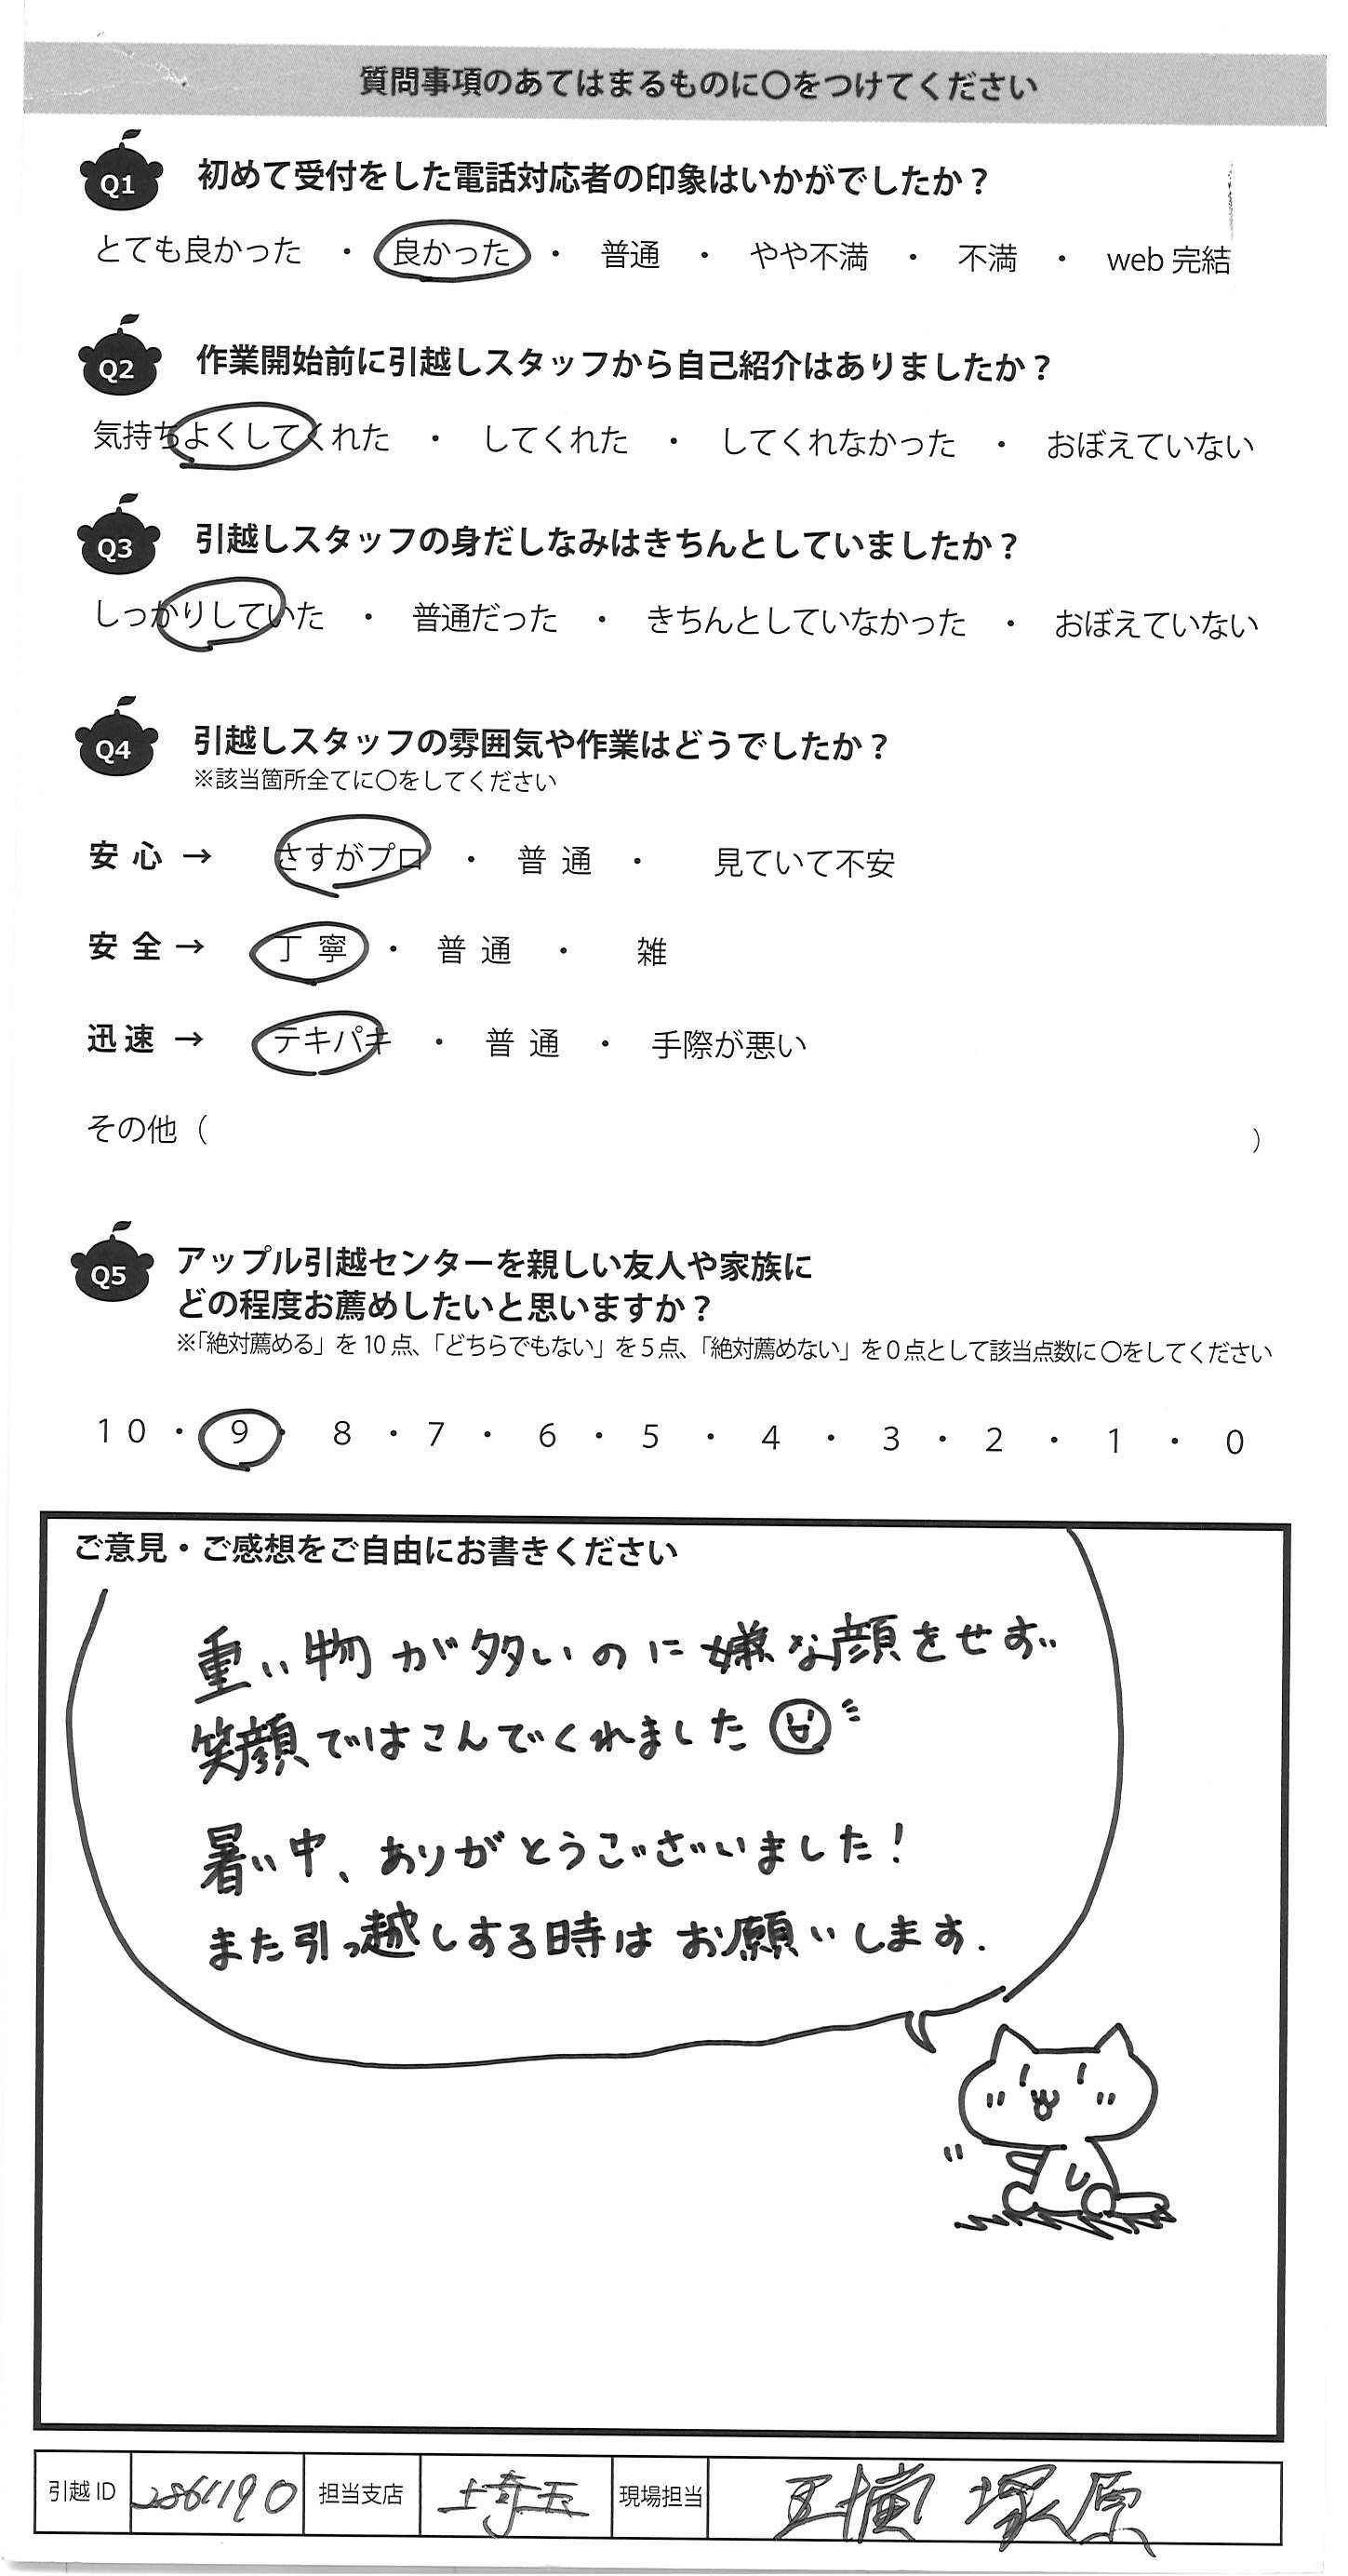 質問事項のあてはまるものに〇をつけてください
Q1 初めて受付をした電話対応者の印象はいかがでしたか？
とても良かった ・ 良かった ・ 普通 ・ やや不満 ・ 不満 ・ web 完結
Q2 作業開始前に引越しスタッフから自己紹介はありましたか？
気持ちよくしてくれた ・ してくれた ・ してくれなかった ・ おぼえていない
Q3 引越しスタッフの身だしなみはきちんとしていましたか？
しっかりしていた ・ 普通だった ・ きちんとしていなかった ・ おぼえていない
Q4 引越しスタッフの雰囲気や作業はどうでしたか？
※該当箇所全てに〇をしてください
安心 → さすがプロ ・ 普通 ・ 見ていて不安
安全 → 丁寧 ・ 普通 ・ 雑
迅速 → テキパキ ・ 普通 ・ 手際が悪い
その他（ ）
Q5 アップル引越センターを親しい友人や家族に
どの程度お薦めしたいと思いますか？
※「絶対薦める」を 10 点、「どちらでもない」を 5 点、「絶対薦めない」を 0 点として該当点数に 〇をしてください
10 ・ 9 ・ 8 ・ 7 ・ 6 ・ 5 ・ 4 ・ 3 ・ 2 ・ 1 ・ 0
ご意見・ご感想をご自由にお書きください
重い物が多いのに嫌な顔をせず
笑顔ではこんでくれました
暑い中、ありがとうございました！
また引っ越しする時はお願いします.
引越 ID 2861190 担当支店 埼玉 現場担当 塚原